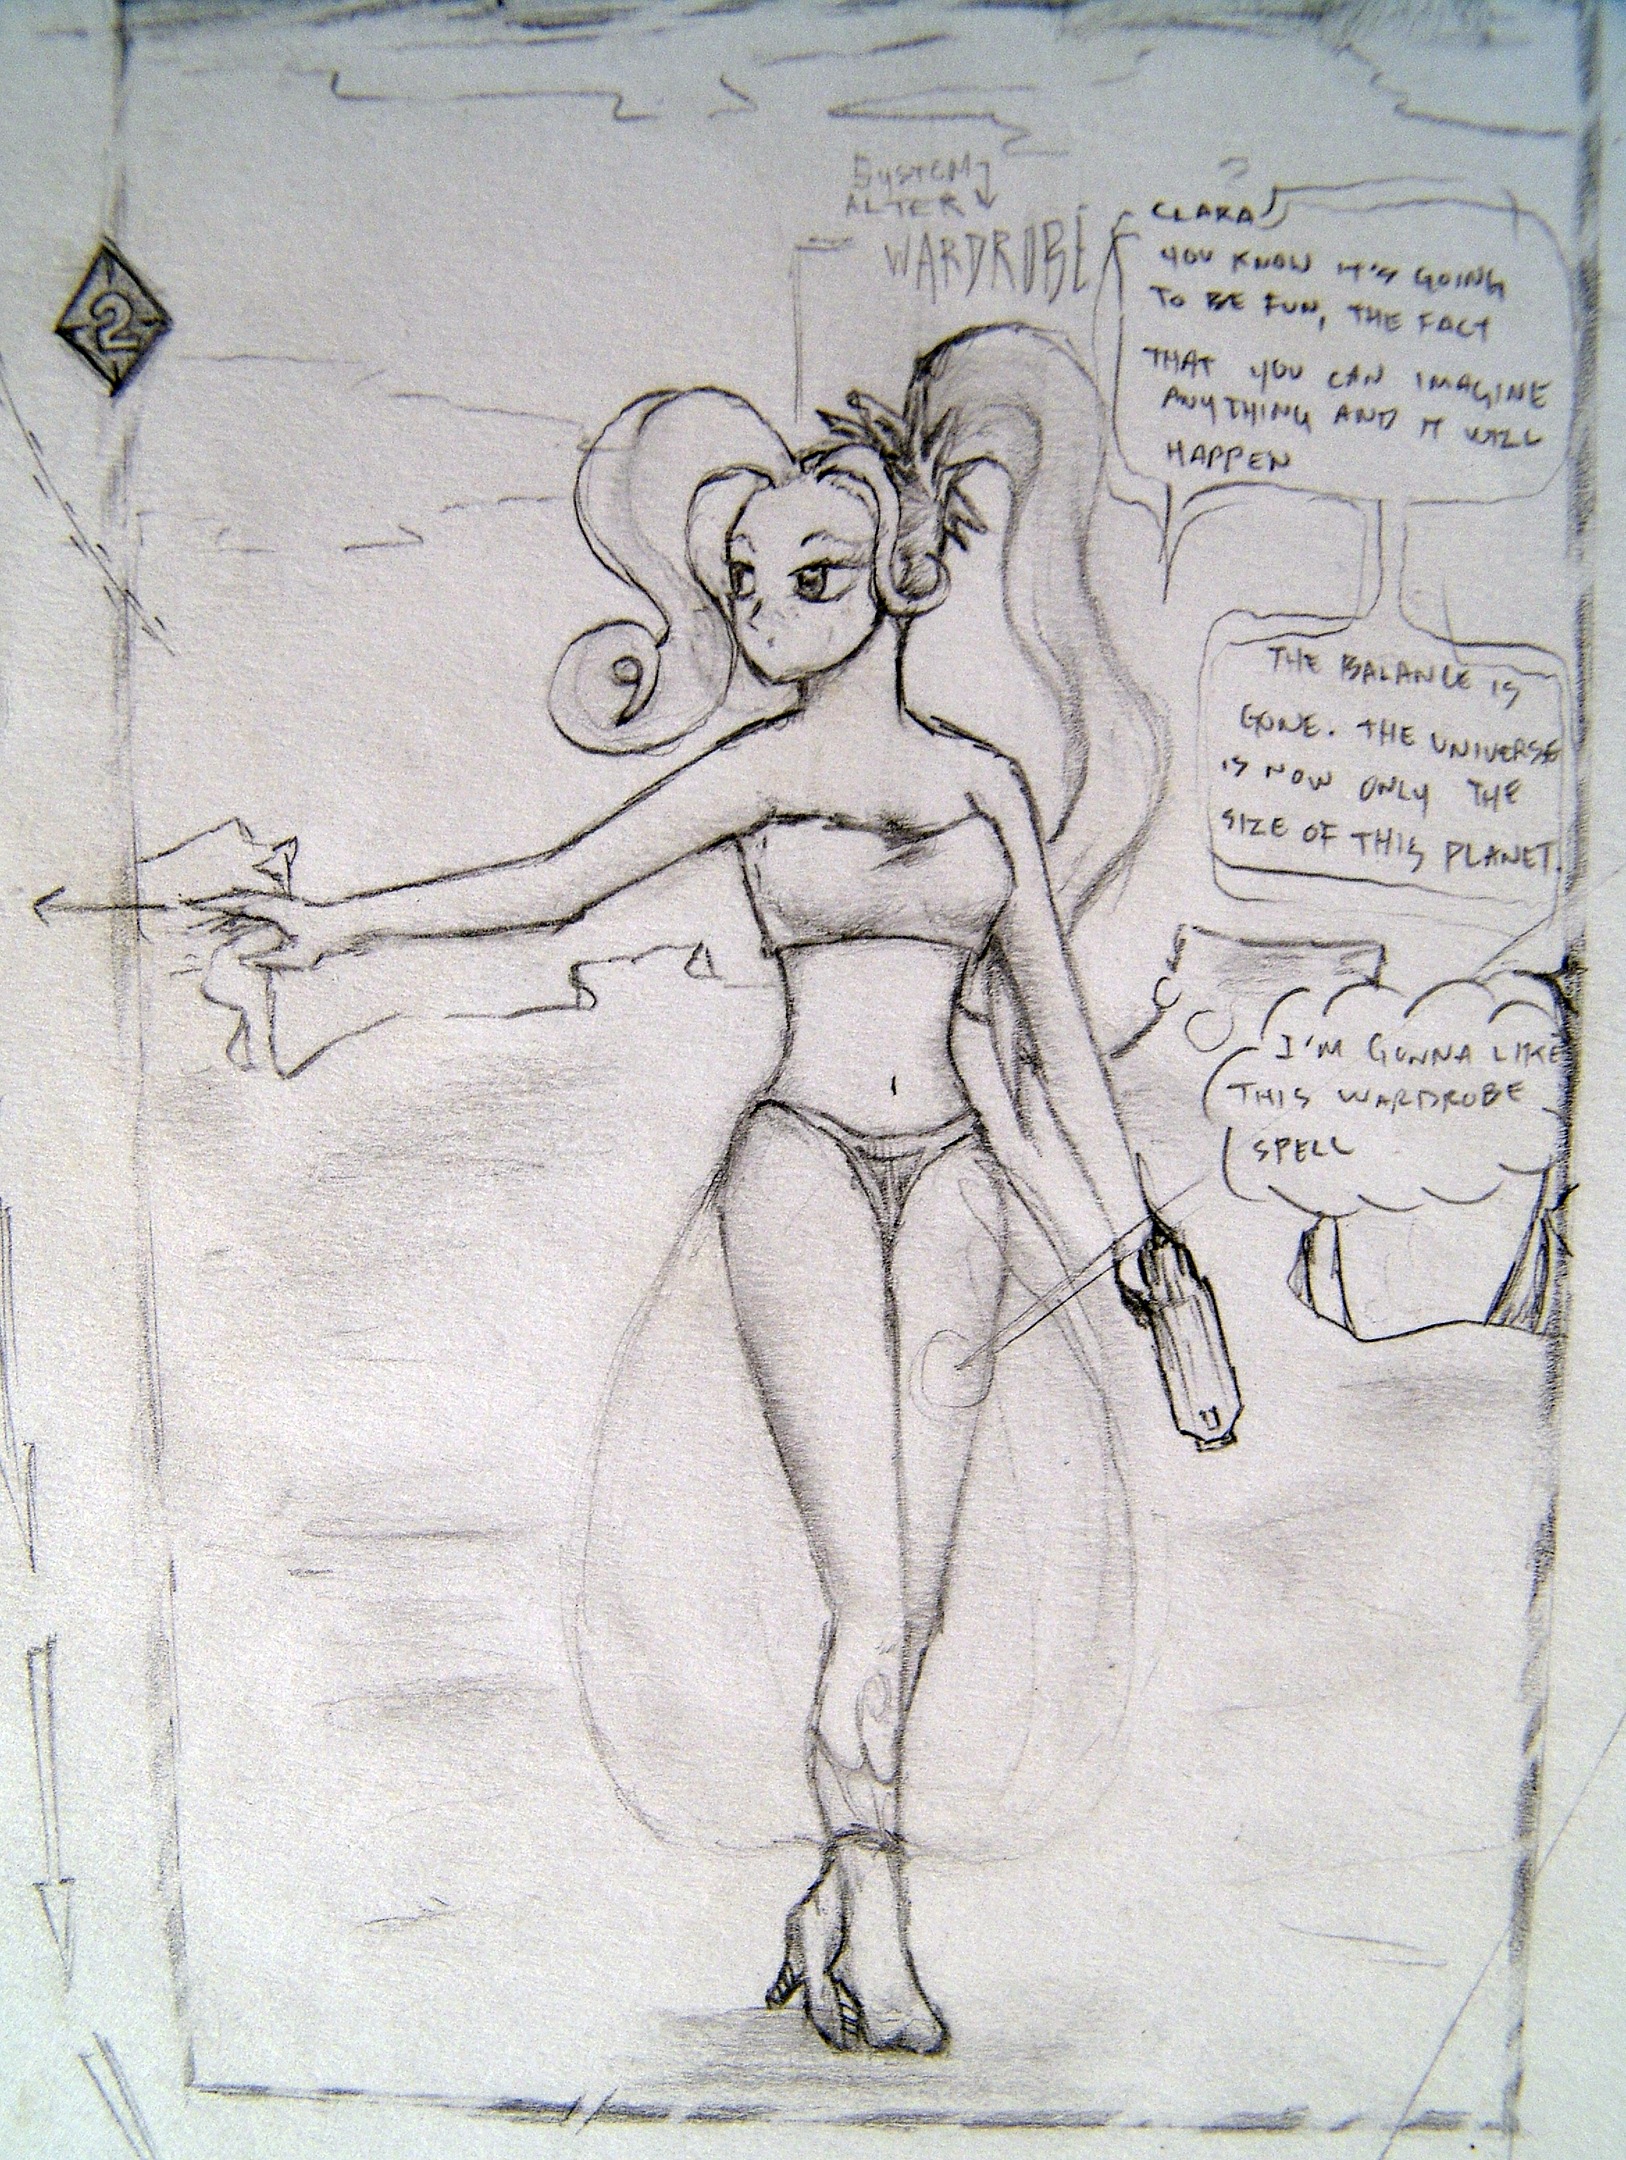 SYSTEM
ALTER
WARDROBE
2
CLARA
YOU KNOW IT'S GOING
TO BE FUN, THE FACT
THAT YOU CAN IMAGINE
ANYTHING AND IT WILL
HAPPEN
THE BALANCE IS
GONE. THE UNIVERSE
IS NOW ONLY THE
SIZE OF THIS PLANET.
I'M GONNA LIKE
THIS WARDROBE
SPELL